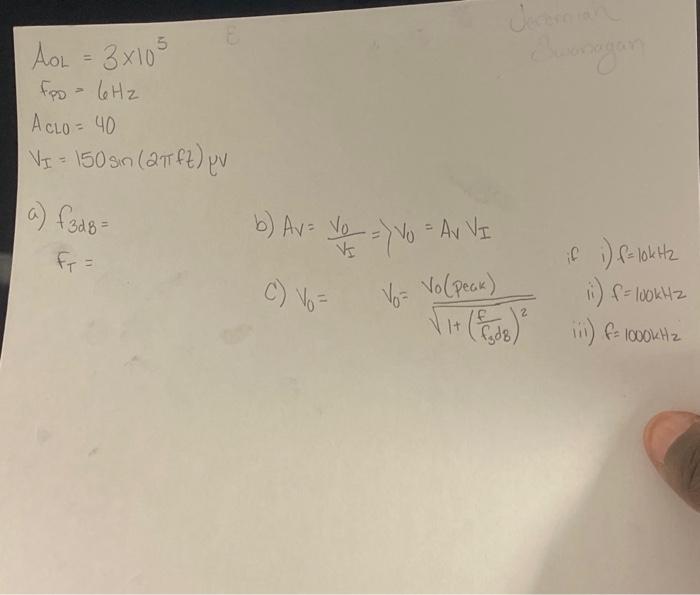 Jeremiah
Swanagan
A_OL = 3×10^5
f_PD = 6Hz
A_CLO = 40
V_I = 150 sin(2πft) μV
a) f_3dB =
f_T =
b) A_V = V_O/V_I => V_O = A_V V_I
c) V_O = V_O = V_O(peak)/√(1+(f/f_3dB)^2)
if i) f=10kHz
ii) f=100kHz
iii) f=1000kHz